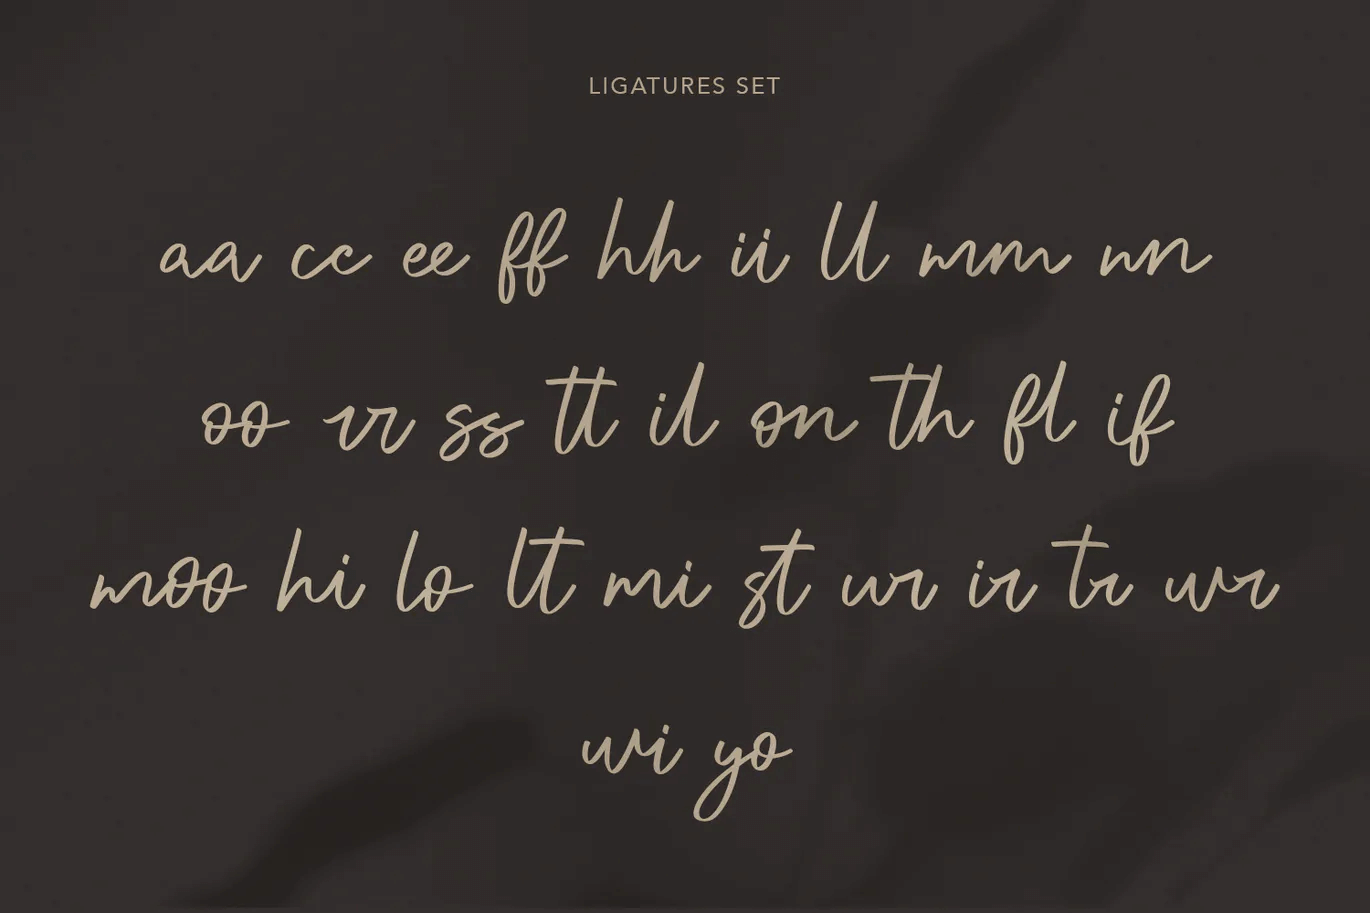 LIGATURES SET
aa cc ee ff hh ii ll mm nn
oo rr ss tt il on th fl if
moo hi lo lt mi st ur ir tr wr
wi yo